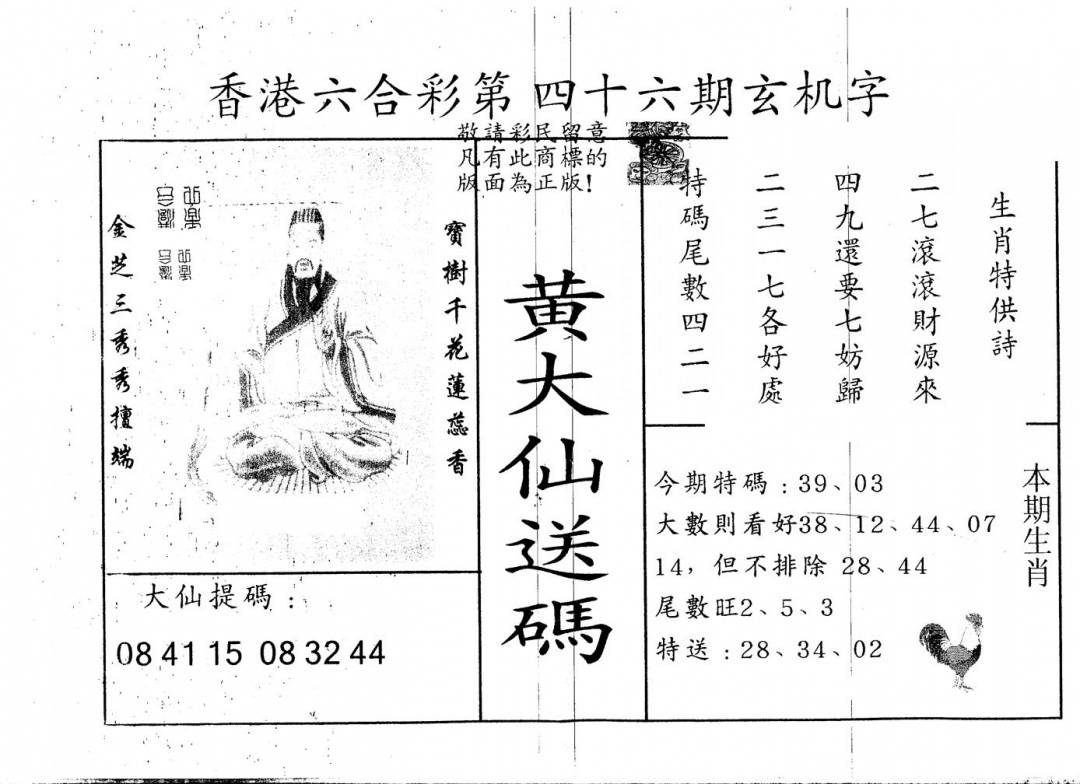 香港六合彩第 四十六期玄机字
敬請彩民留意
凡有此商標的
版面為正版!
金芝三秀秀擅端
寶樹千花蓮蕊香
黃大仙送碼
生肖特供詩
二七滾滾財源來
四九還要七妨歸
二三一七各好處
特碼尾數四二一
大仙提碼:
08 41 15 08 32 44
本期生肖
今期特碼:39、03
大數則看好38、12、44、07
14,但不排除 28、44
尾數旺2、5、3
特送:28、34、02